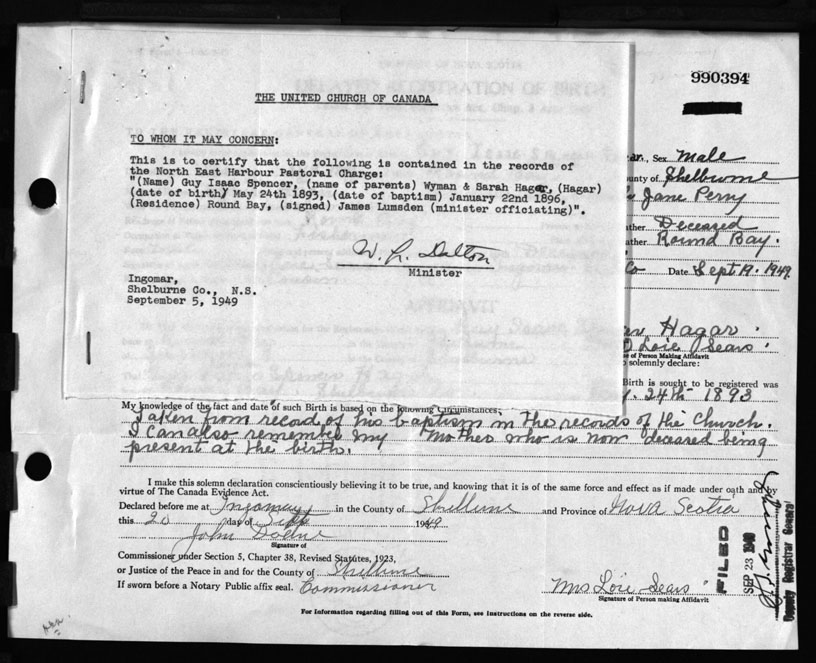 990394
THE UNITED CHURCH OF CANADA
TO WHOM IT MAY CONCERN:
This is to certify that the following is contained in the records of
the North East Harbour Pastoral Charge:
"(Name) Guy Isaac Spencer, (name of parents) Wyman & Sarah Hager, (Hagar)
(date of birth) May 24th 1893, (date of baptism) January 22nd 1896,
(Residence) Round Bay, (signed) James Lumsden (minister officiating)".
W. L. Dalton
Minister
Ingomar,
Shelburne Co., N.S.
September 5, 1949
Sex Male
County of Shelburne
Jane Perry
Deceased
Round Bay.
Co Date Sept 19. 1949
Hagar
Loie Sears
of Person Making Affidavit
solemnly declare:
Birth is sought to be registered was
24th 1893
My knowledge of the fact and date of such Birth is based on the following Circumstances:
Taken from record of his baptism in the records of the Church.
I can also remember my mother who is now deceased being
present at the birth.
I make this solemn declaration conscientiously believing it to be true, and knowing that it is of the same force and effect as if made under oath and by
virtue of The Canada Evidence Act.
Declared before me at Ingomar in the County of Shelburne and Province of Nova Scotia
this 20 day of Sept 1949
John
Signature of
Commissioner under Section 5, Chapter 38, Revised Statutes, 1923,
or Justice of the Peace in and for the County of Shelburne
If sworn before a Notary Public affix seal. Commissioner
Mrs Loie Sears
Signature of Person making Affidavit
For Information regarding filling out of this Form, see Instructions on the reverse side.
FILED
SEP 23 1949
Deputy Registrar General